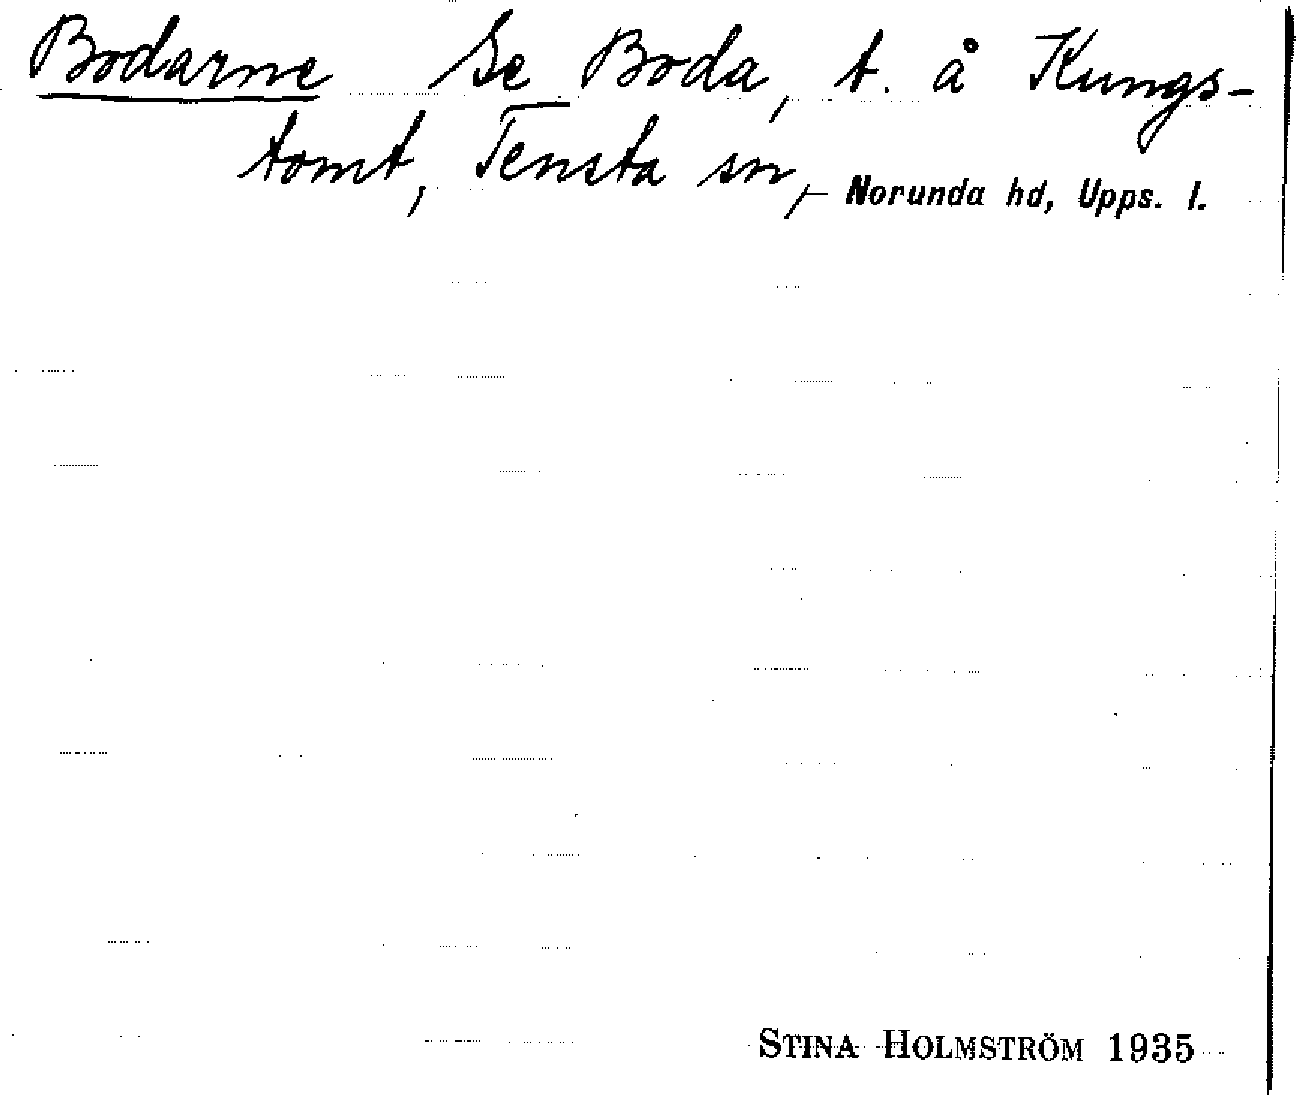 Bodarne Se Boda, t. å Kungs-
tomt, Tensta sn, Norunda hd, Upps. l.
STINA HOLMSTRÖM 1935